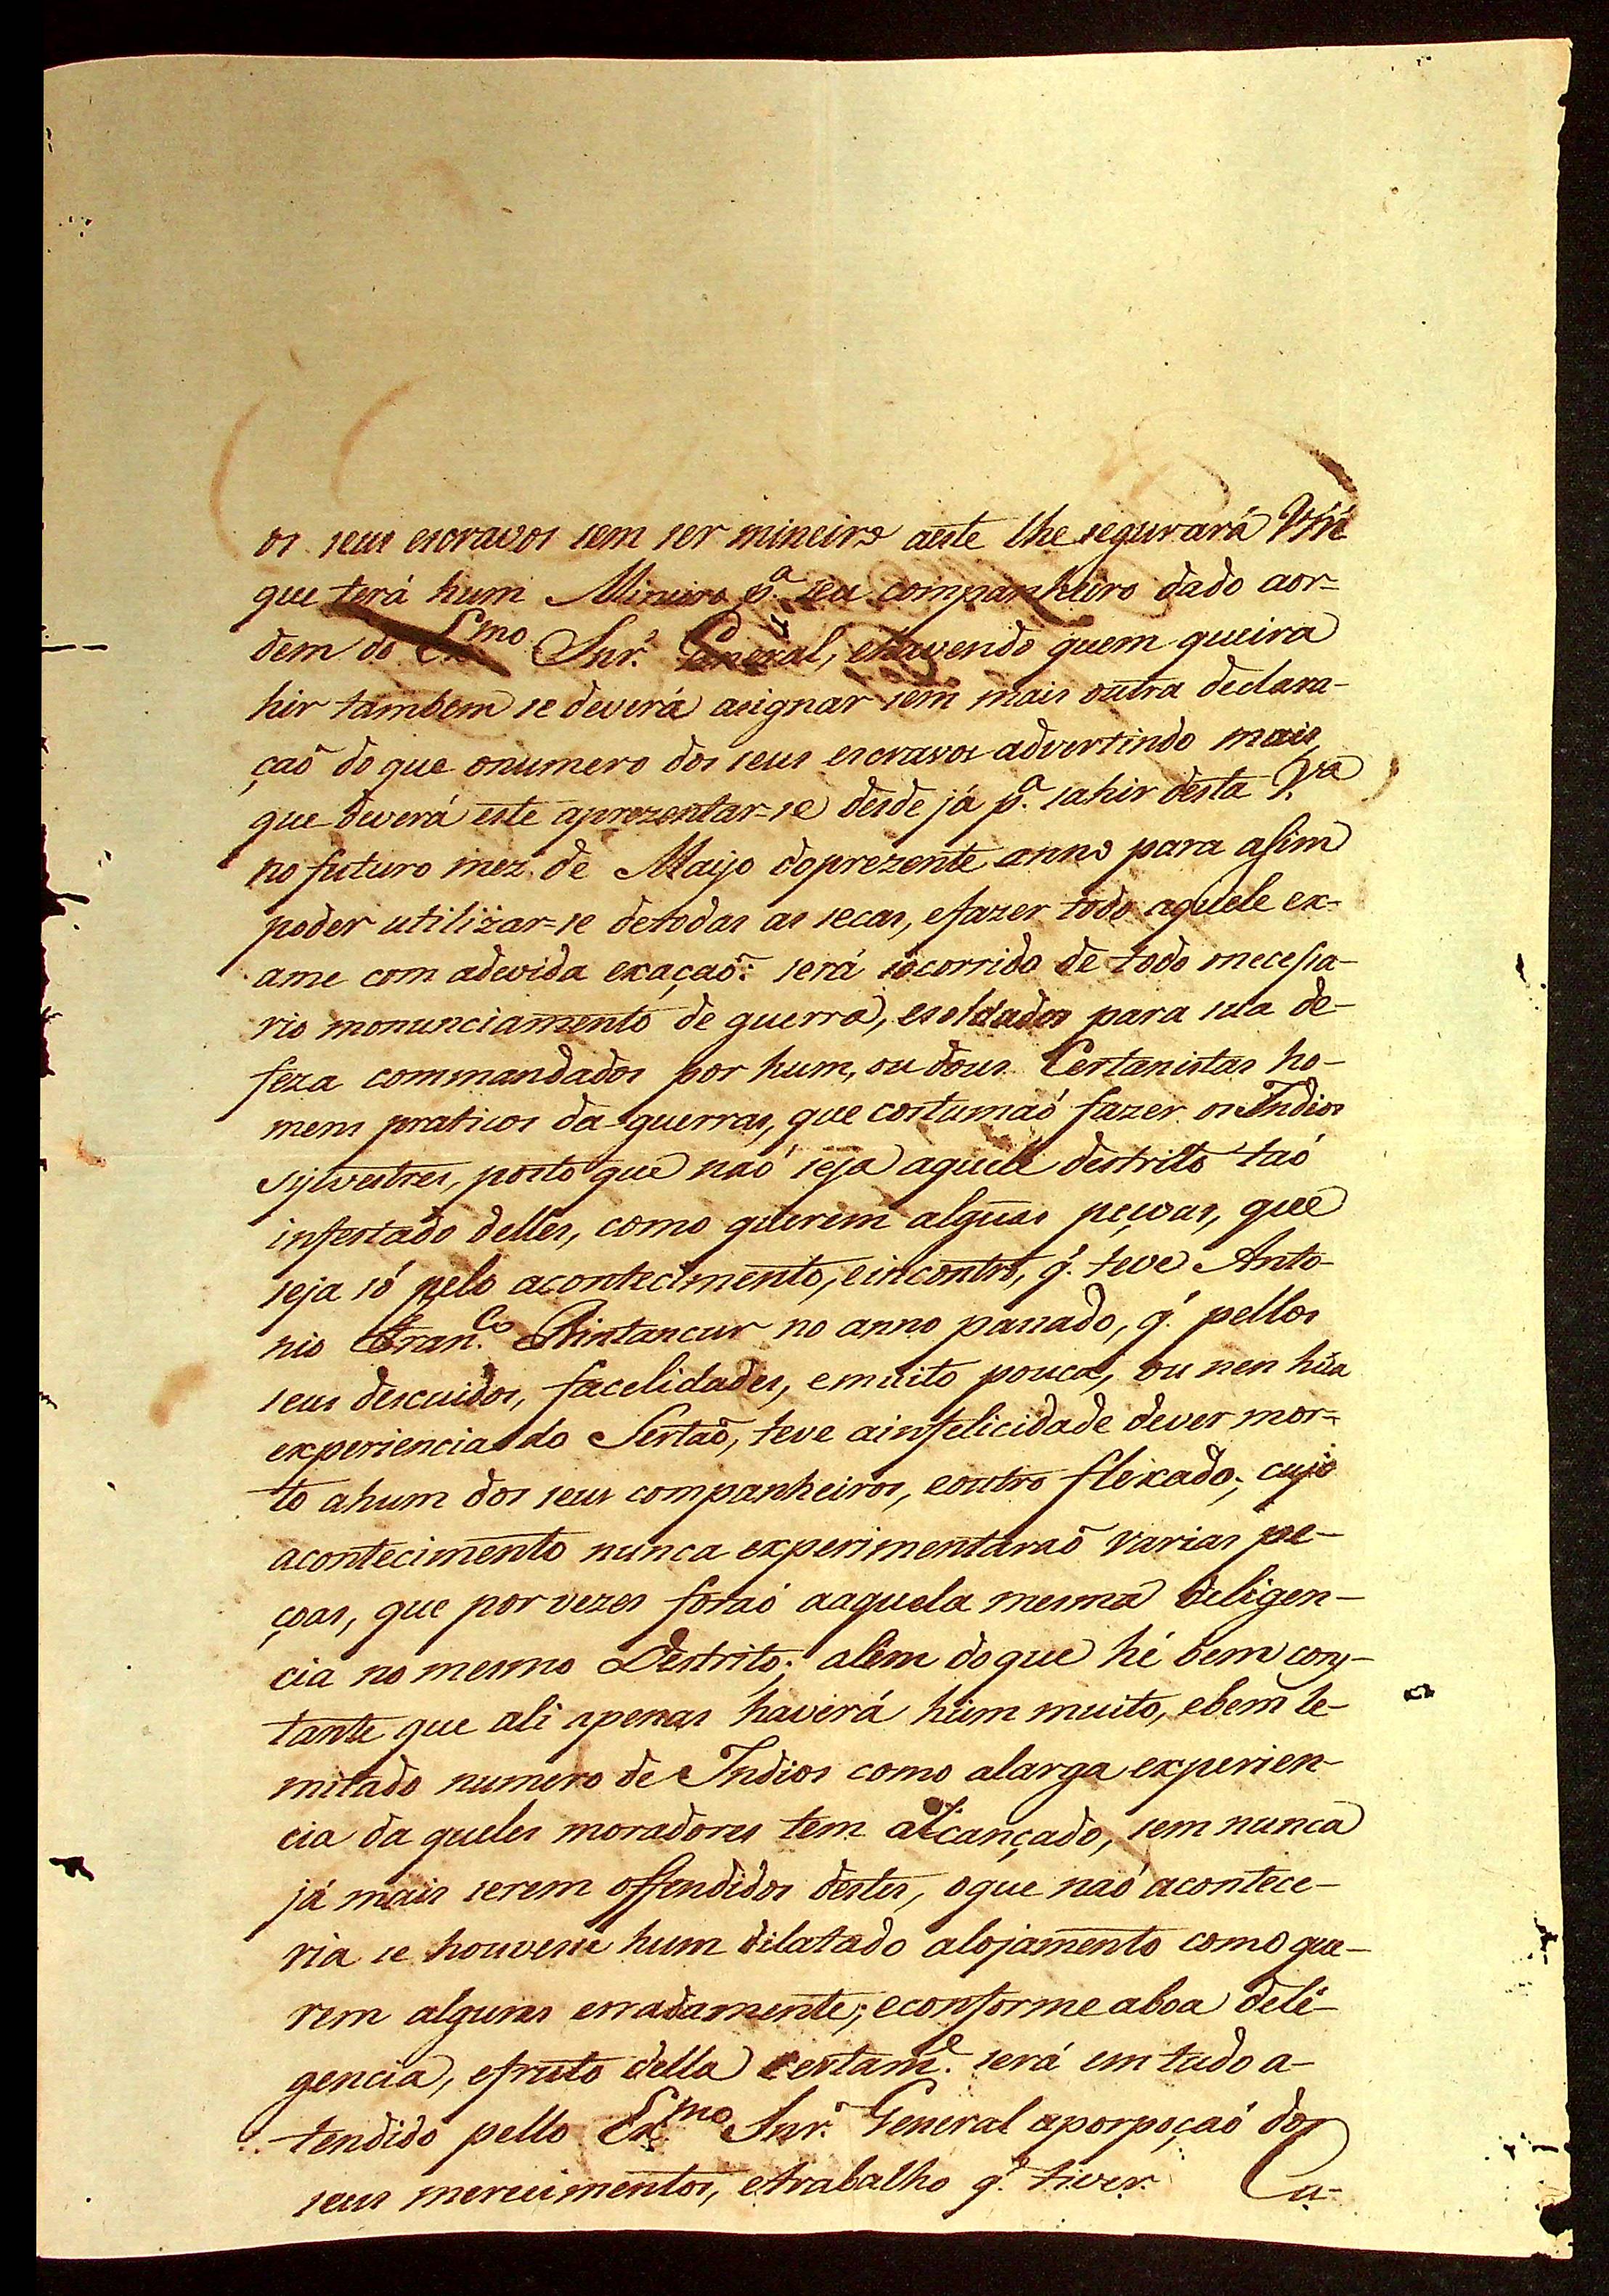 os seus escravos sem ser mineiro aeste lhe segurará Vm̃ce
que terá hum Mineiro p.ª seu companheiro dado aor=
dem do Exmo Snr. General, ehavendo quem queira
hir tambem se deverá asignar sem mais outra declara-
çaõ do que onumero dos seus escravos advertindo mais
que deverá este aprezentar=se desde já p.ª sahir desta V.ª
no futuro mez de Mayo doprezente anno para asim
poder utilizar=se detodas as secas, efazer todo aquele ex-
ame com adevida exaçaõ: será socorrido de todo onecesa-
rio monunciamento de guerra, esoldados para sua de-
feza commandados por hum, ou dous Certanistas ho-
mens praticos da guerras, que costumaõ fazer os Indios
sylvestres, posto que naõ seja aquele destrito taõ
infestado delles, como querem algũas peçoas, que
seja só pelo acontecimento, eincontro, q̃. teve Anto-
nio Fran.co Bintancur no anno passado, q̃. pellos
seus descuidos, facelidades, emuito pouca, ou nen hũa
experiencia do Sertaõ, teve ainfelicidade dever mor-
to ahum dos seus companheiros, eoutro flexado; cujo
acontecimento nunca experimentaraõ varias pe-
çoas, que por vezes foraõ aaquela mesma deligen-
cia no mesmo Destrito; alem doque hé bem cons-
tante que ali apenas haverá hum muito, ebem le-
mitado numero de Indios como alarga experien-
cia da queles moradores tem alcançado, sem nunca
já mais serem offendidos destes, oque naõ acontece-
ria se houvesse hum dilatado alojamento como que-
rem alguns erradamente; econforme aboa deli-
gencia, efruto della certam.e será em tudo a-
tendido pello Exmo Snr. General aporpoçaõ dos
seus merecimentos, etrabalho q̃. tiver. Cu-